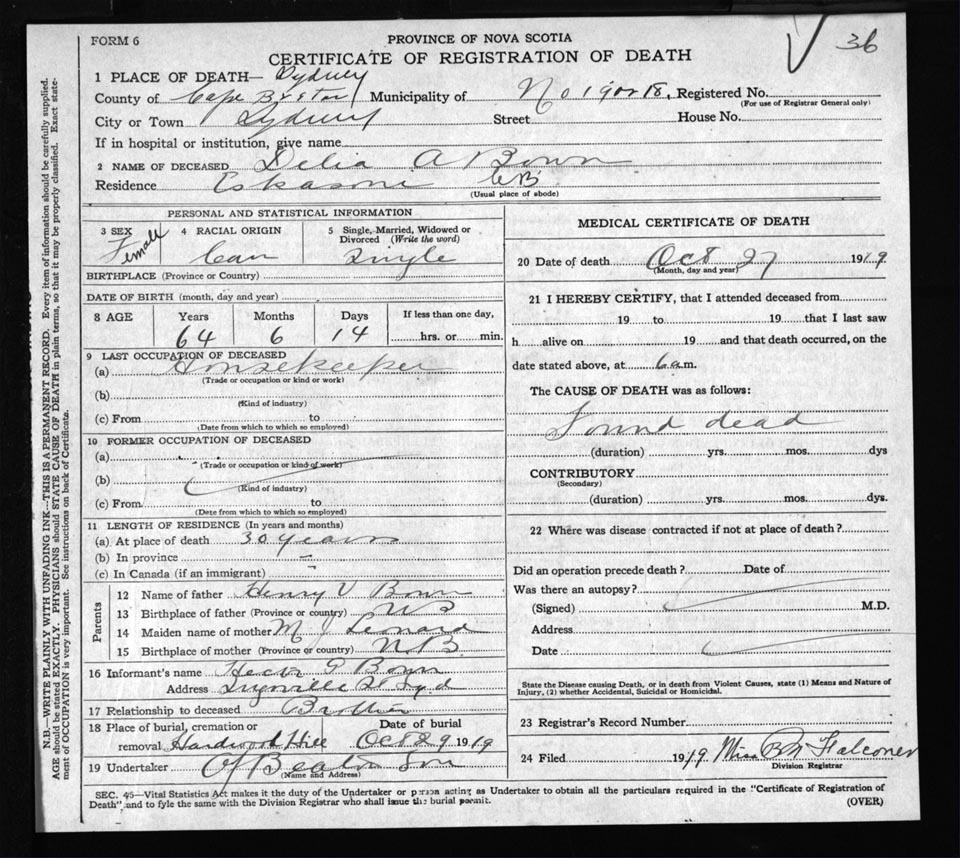 36
FORM 6
PROVINCE OF NOVA SCOTIA
CERTIFICATE OF REGISTRATION OF DEATH
1 PLACE OF DEATH— Sydney
County of Cape Breton Municipality of No 19 or 18, Registered No.
(For use of Registrar General only)
City or Town Sydney Street House No.
If in hospital or institution, give name
2 NAME OF DECEASED Delia A Bown
Residence Eskasoni CB
(Usual place of abode)
PERSONAL AND STATISTICAL INFORMATION
3 SEX 4 RACIAL ORIGIN 5 Single, Married, Widowed or Divorced (Write the word)
Female Can Single
BIRTHPLACE (Province or Country)
DATE OF BIRTH (month, day and year)
8 AGE Years Months Days If less than one day,
64 6 14 hrs. or min.
9 LAST OCCUPATION OF DECEASED
(a) Housekeeper
(Trade or occupation or kind or work)
(b)
(Kind of industry)
(c) From to
(Date from which to which so employed)
10 FORMER OCCUPATION OF DECEASED
(a)
(Trade or occupation or kind of work)
(b)
(Kind of industry)
(c) From to
(Date from which to which so employed)
11 LENGTH OF RESIDENCE (In years and months)
(a) At place of death 30 years
(b) In province
(c) In Canada (if an immigrant)
Parents
12 Name of father Henry V Bown
13 Birthplace of father (Province or country)
14 Maiden name of mother M J Lenard
15 Birthplace of mother (Province or country) N B
16 Informant's name G Bown
Address St Syd
17 Relationship to deceased Brother
18 Place of burial, cremation or removal Hardwood Hill Date of burial Oct 29 1919
19 Undertaker Beaton Son
(Name and Address)
MEDICAL CERTIFICATE OF DEATH
20 Date of death Oct 27 1919
(Month, day and year)
21 I HEREBY CERTIFY, that I attended deceased from
19 to 19 that I last saw
h alive on 19 and that death occurred, on the
date stated above, at 6 a.m.
The CAUSE OF DEATH was as follows:
Found dead
(duration) yrs. mos. dys
CONTRIBUTORY
(Secondary)
(duration) yrs. mos. dys.
22 Where was disease contracted if not at place of death?
Did an operation precede death? Date of
Was there an autopsy?
(Signed) M.D.
Address
Date
State the Disease causing Death, or in death from Violent Causes, state (1) Means and Nature of
Injury, (2) whether Accidental, Suicidal or Homicidal.
23 Registrar's Record Number
24 Filed 1919 Miss B M Falconer
Division Registrar
SEC. 45—Vital Statistics Act makes it the duty of the Undertaker or person acting as Undertaker to obtain all the particulars required in the "Certificate of Registration of
Death", and to fyle the same with the Division Registrar who shall issue the burial permit. (OVER)
N.B.—WRITE PLAINLY WITH UNFADING INK—THIS IS A PERMANENT RECORD. Every item of information should be carefully supplied.
AGE should be stated EXACTLY. PHYSICIANS should STATE CAUSE OF DEATH in plain terms, so that it may be properly classified. Exact state-
ment of OCCUPATION is very important. See instructions on back of Certificate.